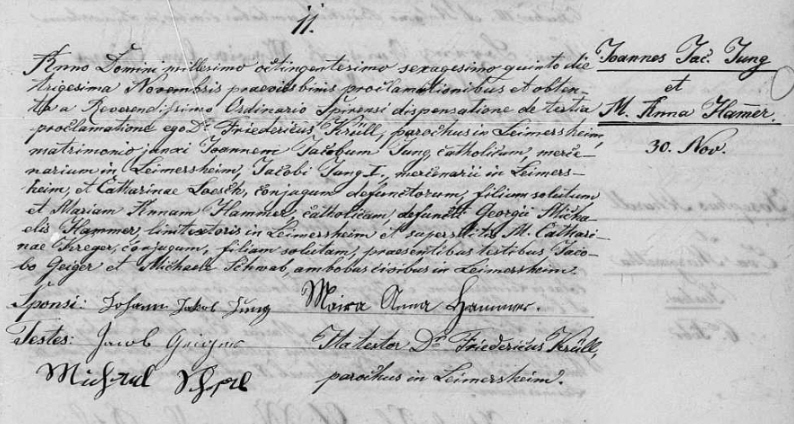 11.
Anno Domini millesimo octingentesimo sexagesimo quinto die
trigesima Novembris praeviis binis proclamationibus et obten-
ta a Reverendissimo Ordinario Spirensi dispensatione de tertia
proclamatione ego Dr. Friedericus Krüll, parochus in Leimersheim,
matrimonio junxi Joannem Jacobum Jung, catholicum, merce-
narium in Leimersheim, Jacobi Jung I., mercenarii in Leimers-
heim, et Catharinae Loesch, conjugum defunctorum, filium solutum
et Mariam Annam Hammer, catholicam, defuncti Georgii Micha-
elis Hammer, linitextoris in Leimersheim et superstitis M. Cathari-
nae Fereger, conjugum, filiam solutam, praesentibus testibus Jaco-
bo Geiger et Michaele Schwab, ambobus civibus in Leimersheim.
Sponsi: Johann Jakob Jung Maira Anna Hammer.
Testes: Jacob Geiger Ita testor Dr. Friedericus Krüll,
Michael parochus in Leimersheim.
Joannes Jac. Jung
et
M. Anna Ham̄er.
30. Nov.